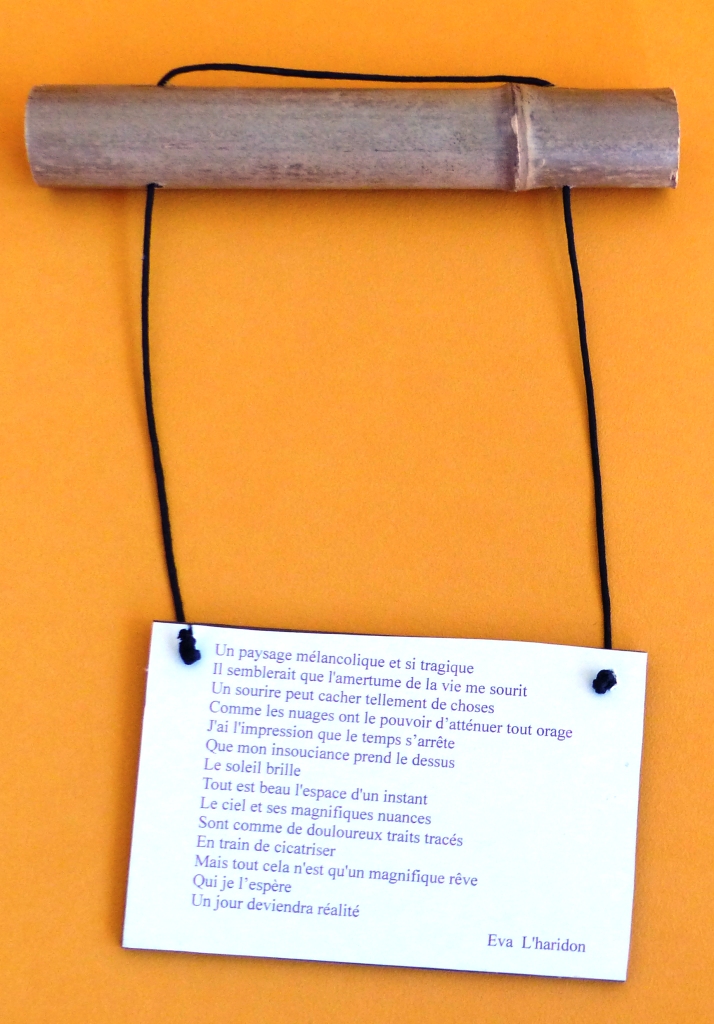 Un paysage mélancolique et si tragique
Il semblerait que l'amertume de la vie me sourit
Un sourire peut cacher tellement de choses
Comme les nuages ont le pouvoir d’atténuer tout orage
J'ai l'impression que le temps s’arrête
Que mon insouciance prend le dessus
Le soleil brille
Tout est beau l'espace d'un instant
Le ciel et ses magnifiques nuances
Sont comme de douloureux traits tracés
En train de cicatriser
Mais tout cela n'est qu'un magnifique rêve
Qui je l’espère
Un jour deviendra réalité
Eva L'haridon